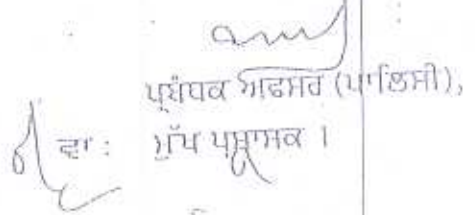 ਪ੍ਰਬੰਧਕ ਅਫਸਰ (ਪਾਲਿਸੀ),
ਵਾ: ਮੁੱਖ ਪ੍ਰਸ਼ਾਸਕ ।